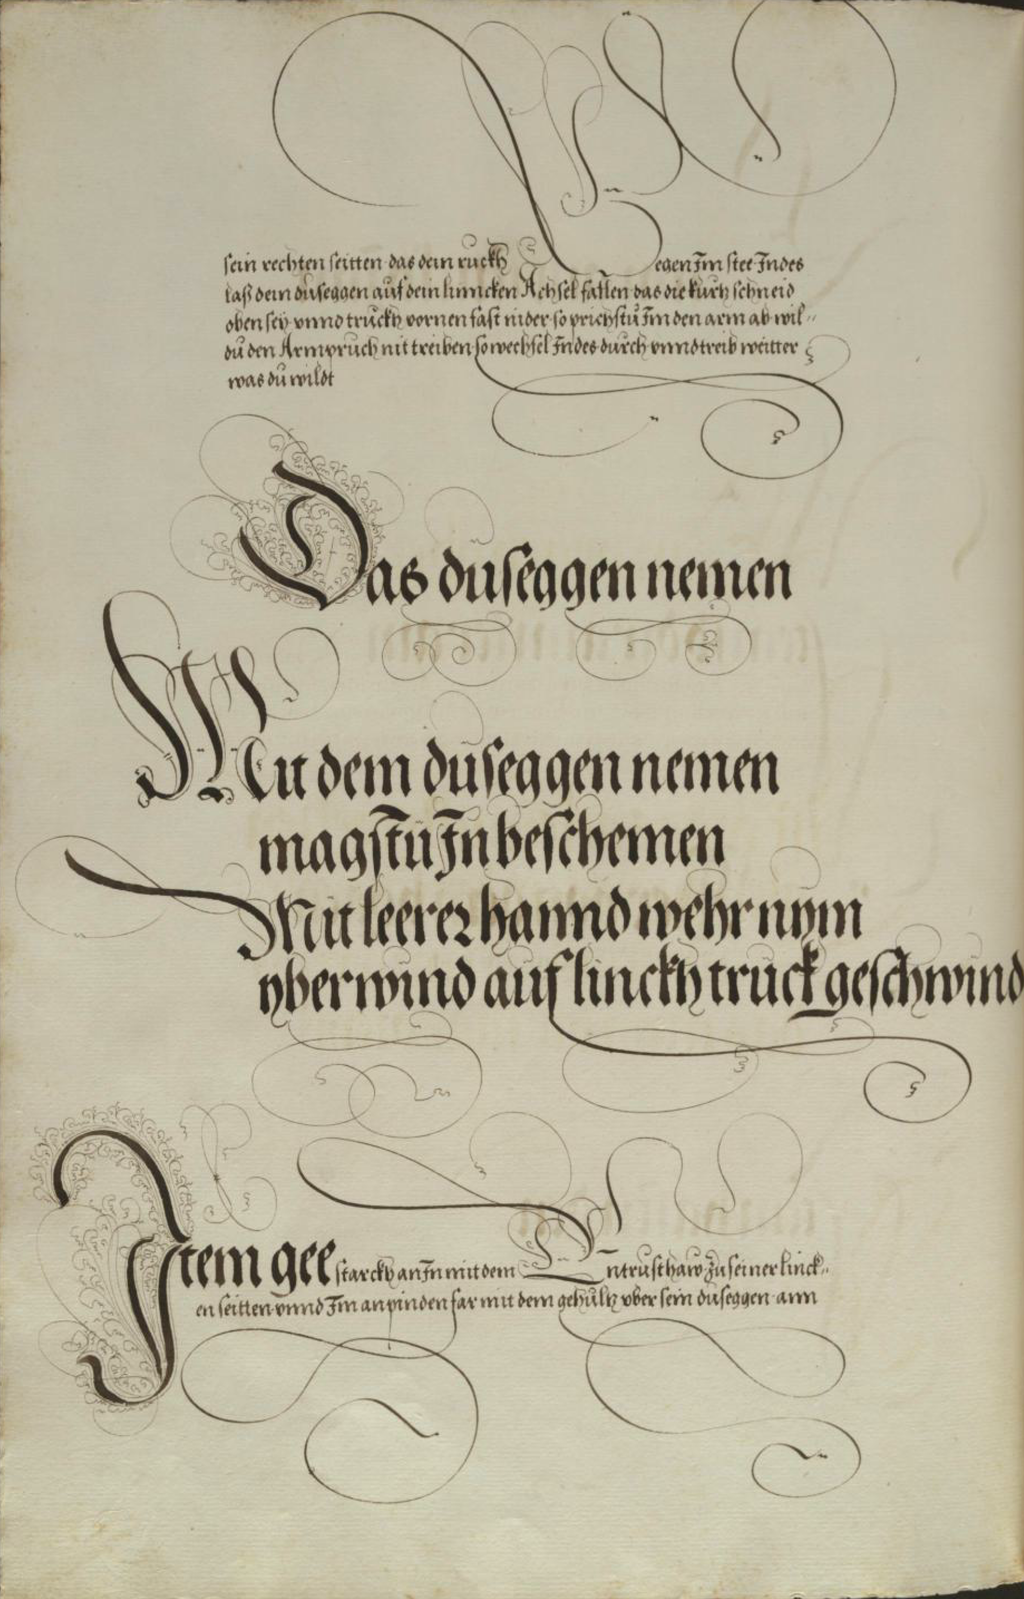 sein rechten seitten das dein ruckh gegen Im stee Indes
laß dein duseggen auf dein linncken Achsel fallen das die kurtz schneid
oben sey vnnd truckh vornen fast nider so prichstu Im den arm ab wil-
du den Armpruch nit treiben so wechsel Indes durch vnnd treib weitter
was du wildt
Das duseggen nemen
Mit dem duseggen nemen
magstu In beschemen
Mit leerer hannd wehr nym
yberwind auf linckh truck geschwind
Item gee starckh an In mit dem Entrusthaw zu seiner linck-
en seitten vnnd Im anpinden far mit dem gehultz vber sein duseggen ann